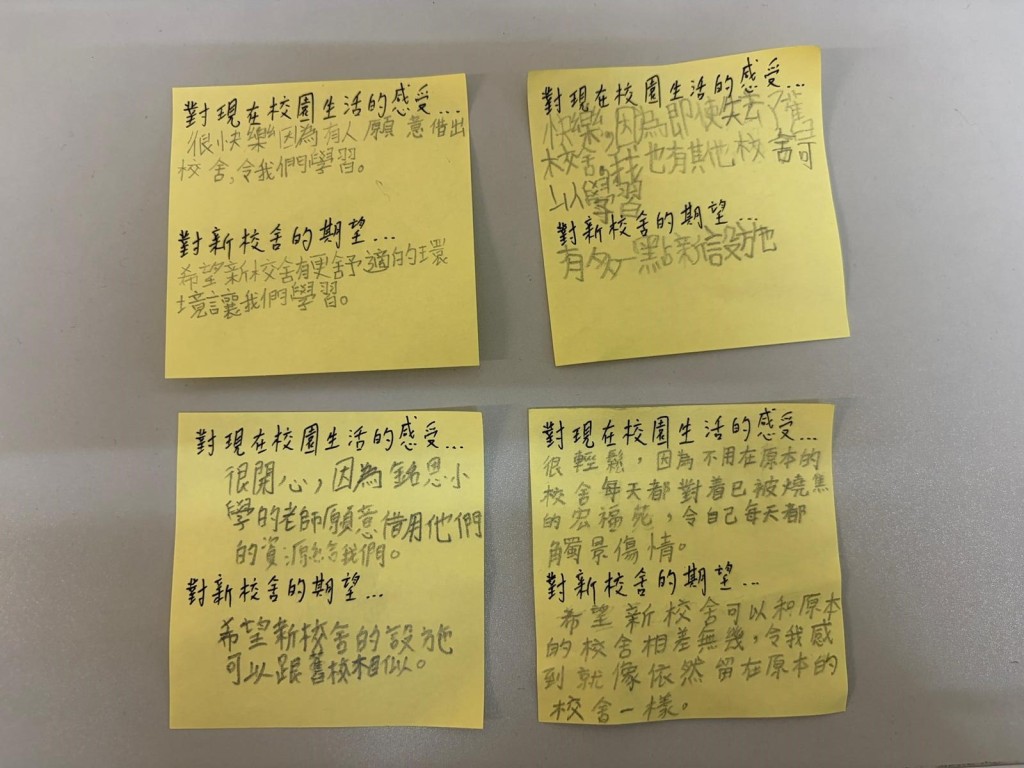 對現在校園生活的感受...
很快樂因為有人願意借出
校舍,令我們學習。
對新校舍的期望...
希望新校舍有更舒適的環
境讓我們學習。
對現在校園生活的感受...
快樂,因為即使失去了舊
校舍。我也有其他校舍可
以學習
對新校舍的期望...
有多一點新設施
對現在校園生活的感受...
很開心,因為銘恩小
學的老師願意借用他們
的資源給我們。
對新校舍的期望...
希望新校舍的設施
可以跟舊校相似。
對現在校園生活的感受...
很輕鬆,因為不用在原本的
校舍每天都對着已被燒焦
的宏福苑,令自己每天都
觸景傷情。
對新校舍的期望...
希望新校舍可以和原本
的校舍相差無幾,令我感
到就像依然留在原本的
校舍一樣。